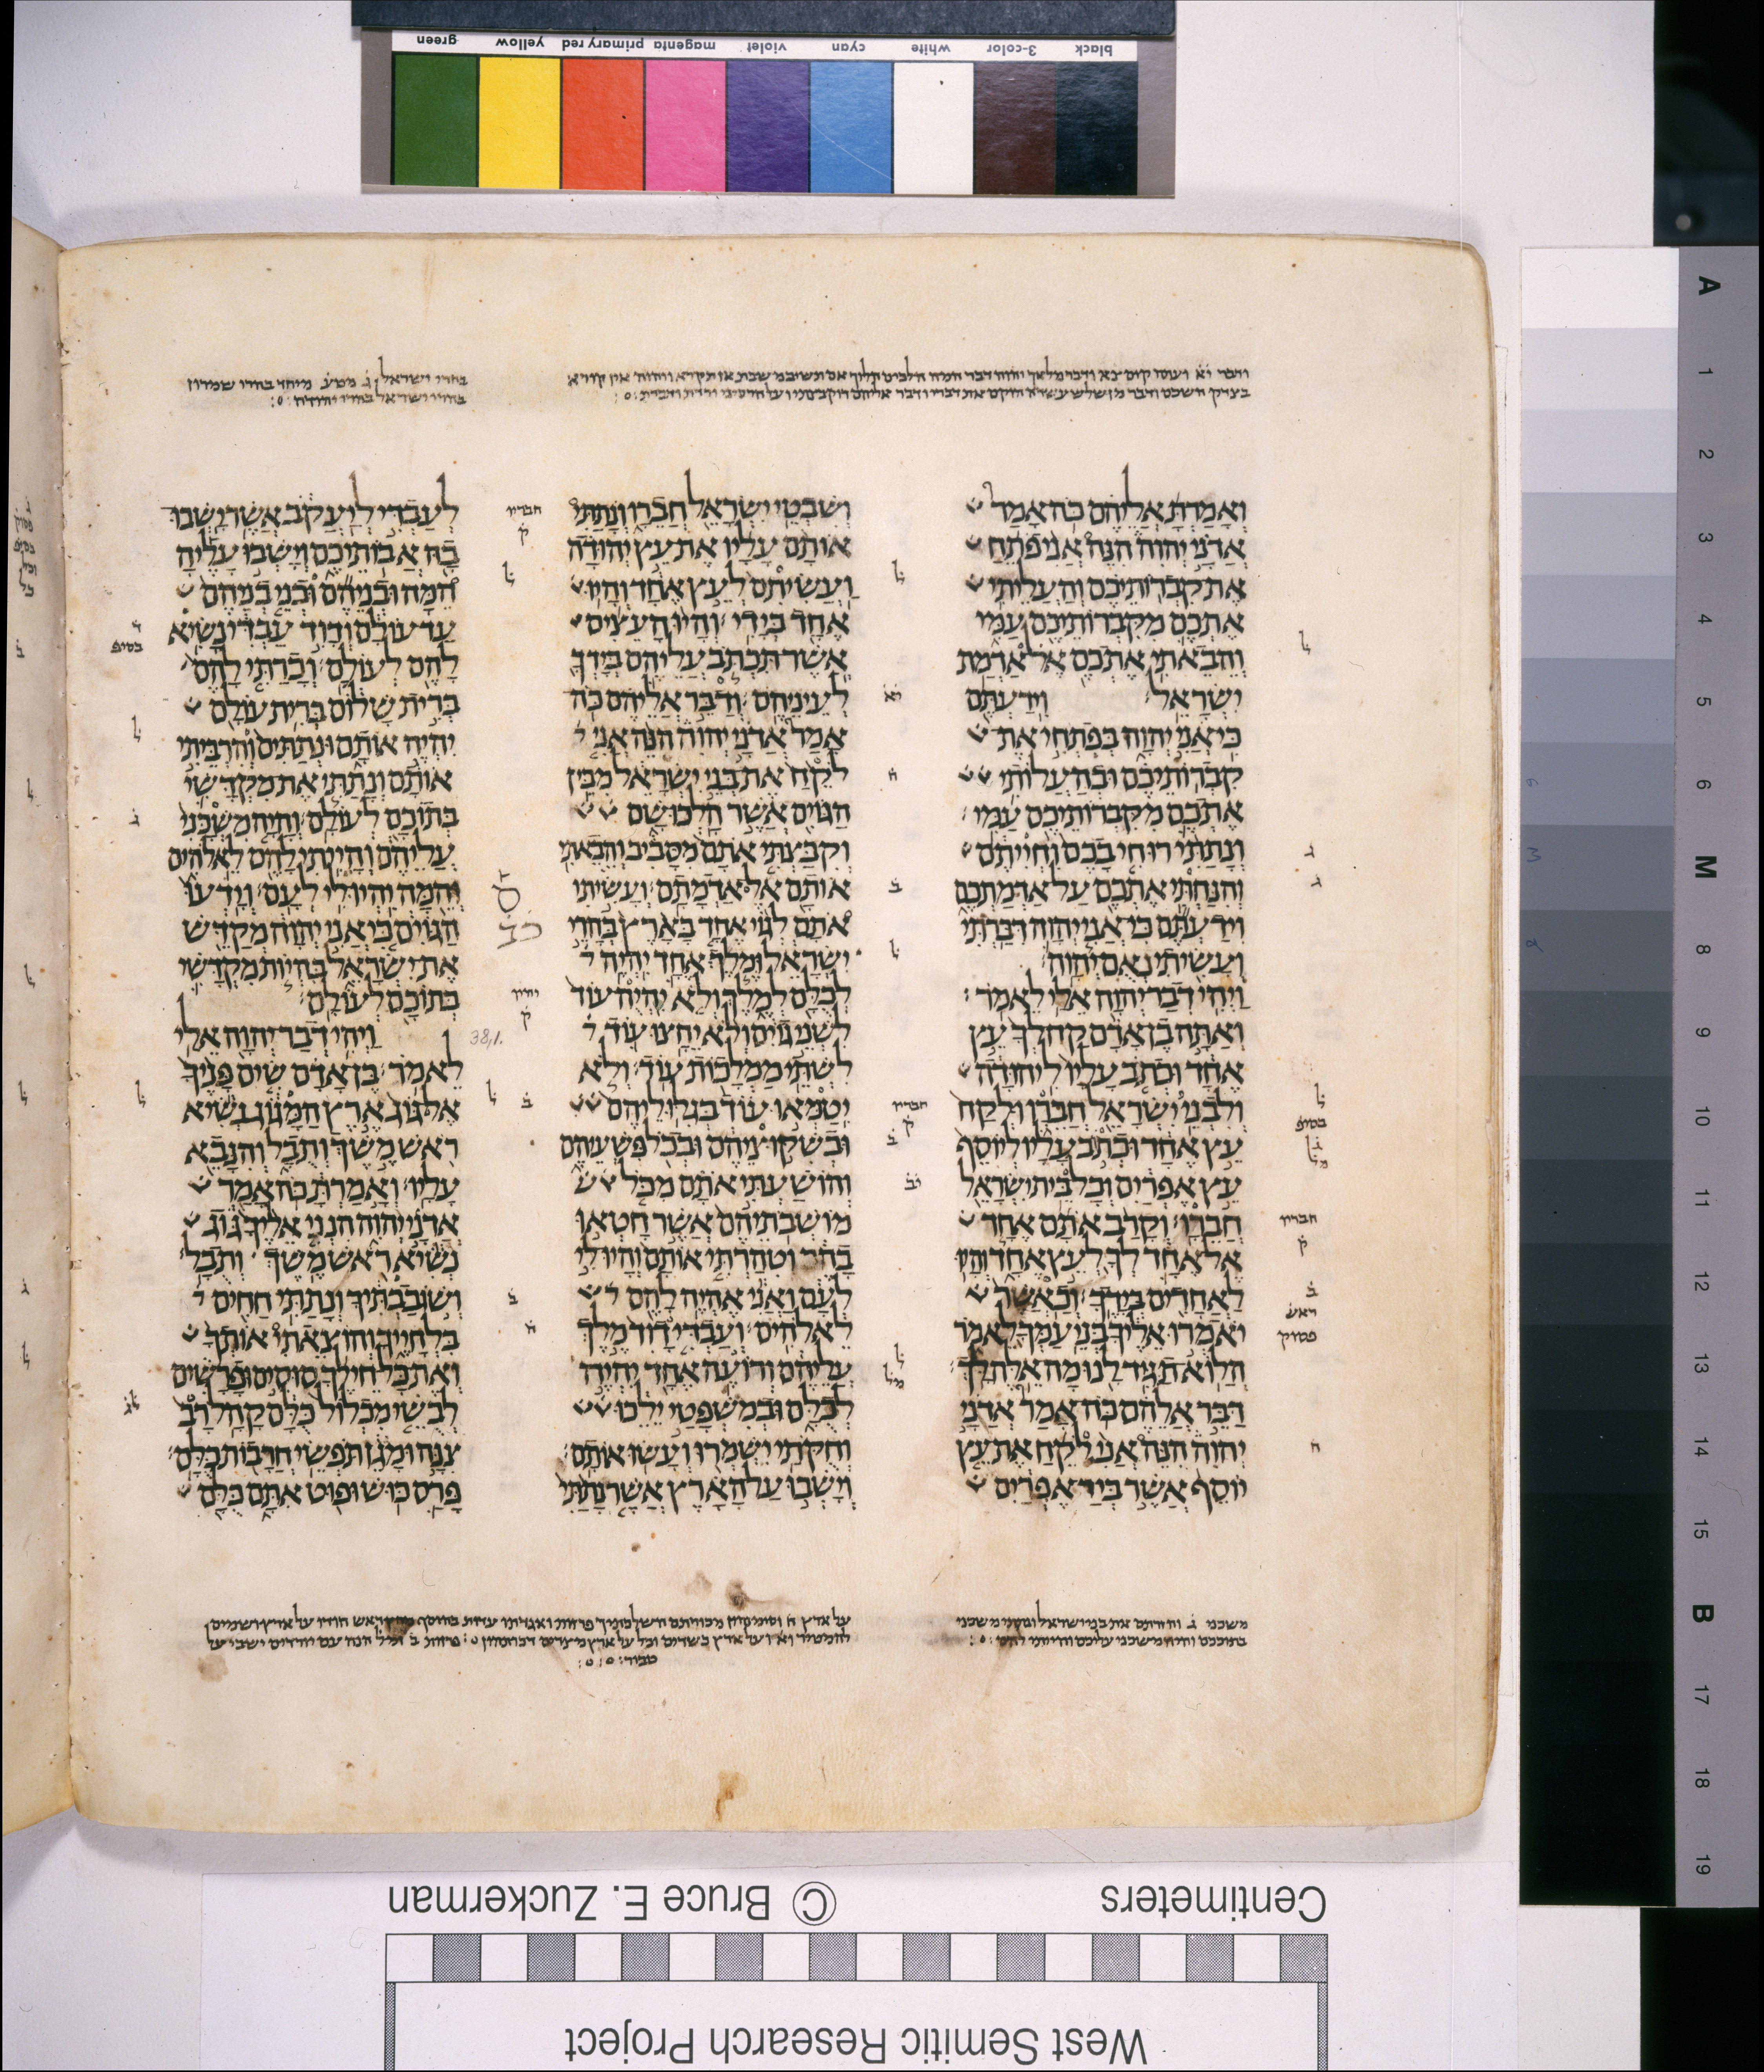 green yellow primary red magenta violet cyan white 3-color black
ואמרת אליהם כה אמר
אדני יהוה הנה אני פתח
את קברותיכם והעליתי
אתכם מקברותיכם עמי
והבאתי אתכם אל אדמת
ישראל וידעתם
כי אני יהוה בפתחי את
קברותיכם ובהעלותי
אתכם מקברותיכם עמי
ונתתי רוחי בכם וחייתם
והנחתי אתכם על אדמתכם
וידעתם כי אני יהוה דברתי
ועשיתי נאם יהוה
ויהי דבר יהוה אלי לאמר
ואתה בן אדם קח לך עץ
אחד וכתב עליו ליהודה
ולבני ישראל חברו ולקח
עץ אחד וכתוב עליו ליוסף
עץ אפרים וכל בית ישראל
חברו וקרב אתם אחד
אל אחד לך לעץ אחד והיו
לאחדים בידך וכאשר
יאמרו אליך בני עמך לאמר
הלוא תגיד לנו מה אלה לך
דבר אלהם כה אמר אדני
יהוה הנה אני לקח את עץ
יוסף אשר ביד אפרים
ושבטי ישראל חברו ונתתי
אותם עליו את עץ יהודה
ועשיתם לעץ אחד והיו
אחד בידי והיו העצים
אשר תכתב עליהם בידך
לעיניהם ודבר אליהם כה
אמר אדני יהוה הנה אני
לקח את בני ישראל מבין
הגוים אשר הלכו שם
וקבצתי אתם מסביב והבאתי
אותם אל אדמתם ועשיתי
אתם לגוי אחד בארץ בהרי
ישראל ומלך אחד יהיה
לכלם למלך ולא יהיה עוד
לשני גוים ולא יחצו עוד
לשתי ממלכות עוד ולא
יטמאו עוד בגלוליהם
ובשקוציהם ובכל פשעיהם
והושעתי אתם מכל
מושבתיהם אשר חטאו
בהם וטהרתי אותם והיו לי
לעם ואני אהיה להם
לאלהים ועבדי דוד מלך
עליהם ורועה אחד יהיה
לכלם ובמשפטי ילכו
וחקתי ישמרו ועשו אותם
וישבו על הארץ אשר נתתי
לעבדי ליעקב אשר ישבו
בה אבותיכם וישבו עליה
המה ובניהם ובני בניהם
עד עולם ודוד עבדי נשיא
להם לעולם וכרתי להם
ברית שלום ברית עולם
יהיה אותם ונתתים והרביתי
אותם ונתתי את מקדשי
בתוכם לעולם והיה משכני
עליהם והייתי להם לאלהים
והמה יהיו לי לעם וידעו
הגוים כי אני יהוה מקדש
את ישראל בהיות מקדשי
בתוכם לעולם
ויהי דבר יהוה אלי
לאמר בן אדם שים פניך
אל גוג ארץ המגוג נשיא
ראש משך ותבל והנבא
עליו ואמרת כה אמר
אדני יהוה הנני אליך גוג
נשיא ראש משך ותבל
ושובבתיך ונתתי חחים
בלחייך והוצאתי אותך
ואת כל חילך סוסים ופרשים
לבשי מכלול כלם קהל רב
צנה ומגן תפשי חרבות כלם
פרס כוש ופוט אתם כלם
38,1.
A 1 2 3 4 5 6 M 8 9 10 11 12 13 14 15 B 17 18 19
Centimeters © Bruce E. Zuckerman
West Semitic Research Project